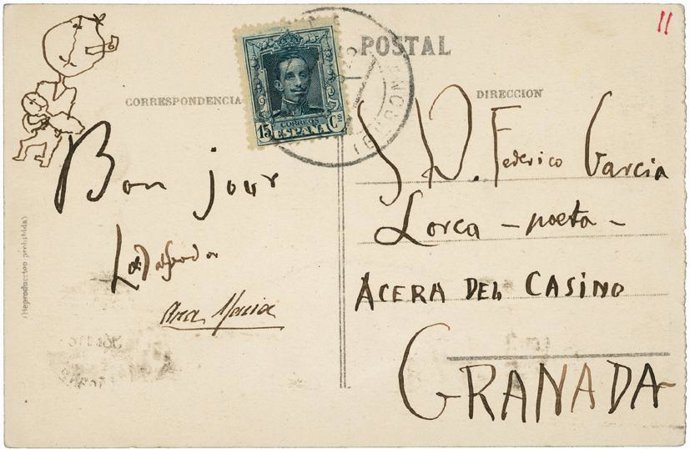 11
POSTAL
CORRESPONDENCIA
DIRECCION
CORREOS
15 ESPAÑA Cs
Bon jour
Ana Maria
S D. Federico Garcia
Lorca - poeta -
ACERA DEL CASINO
GRANADA-
(Reproduccion prohibida)